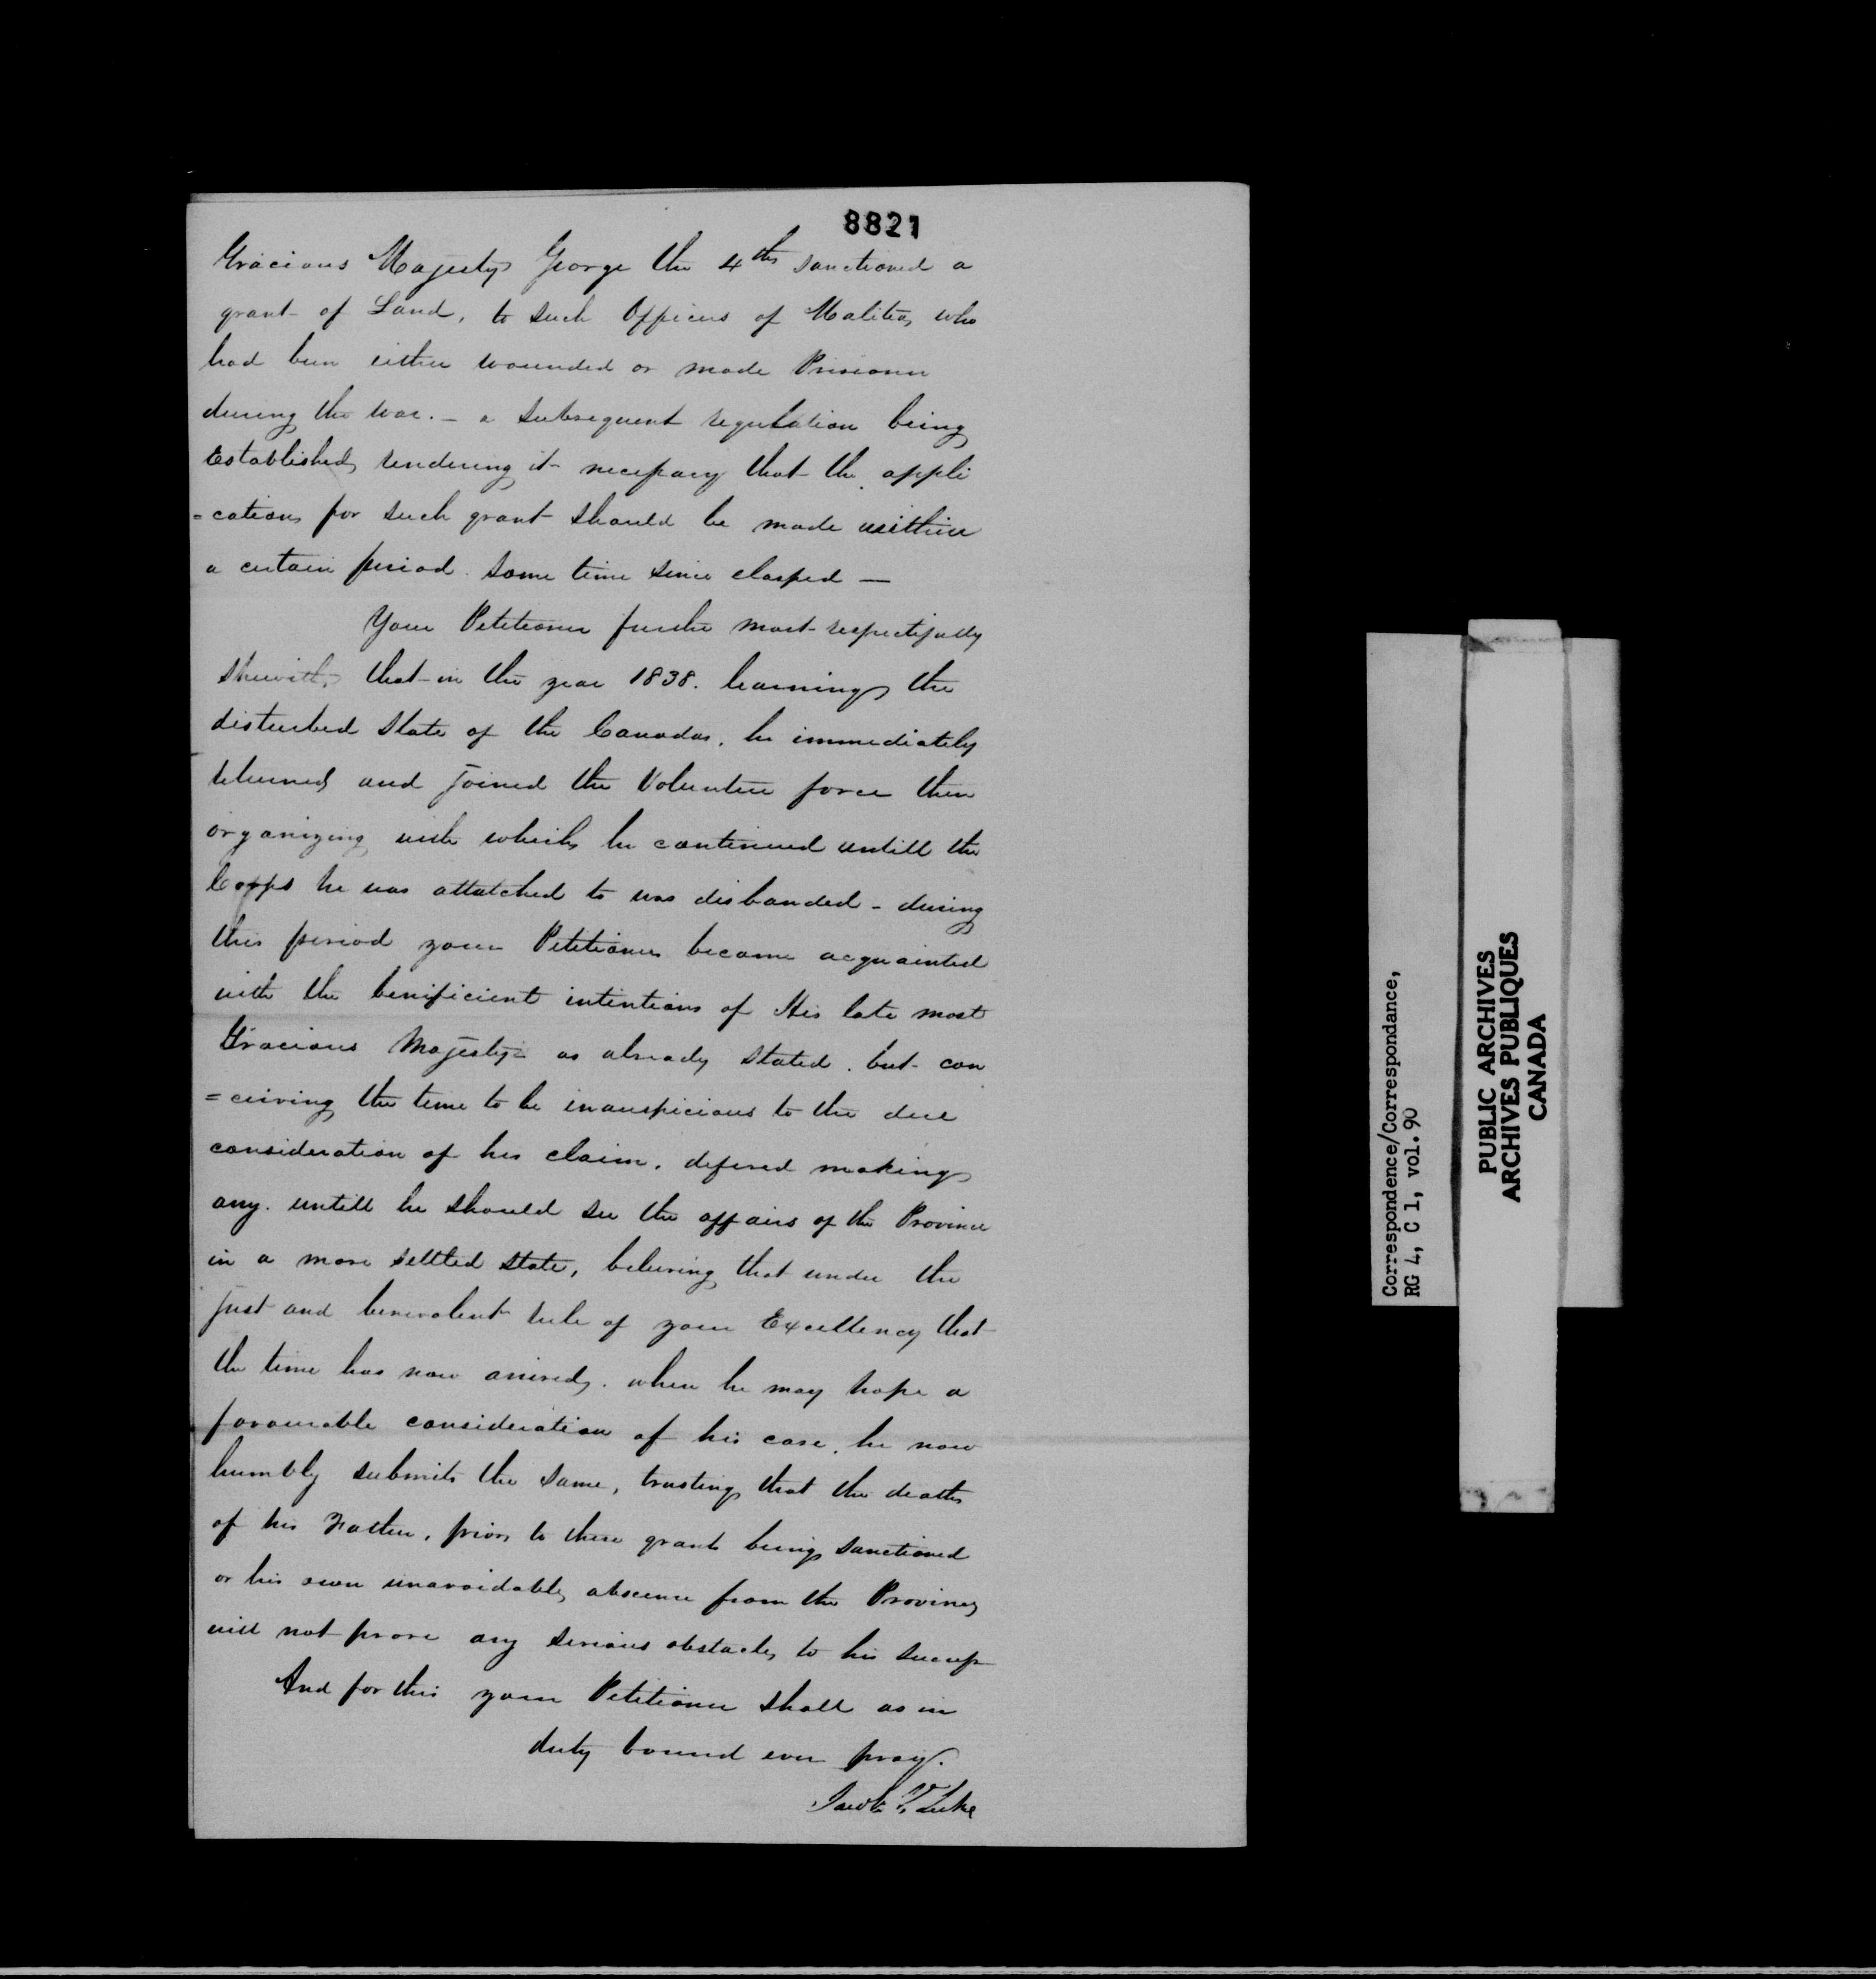 8821
Gracious Majesty George the 4th sanctioned a
grant of Land, to such Officers of Malitia, who
had been either wounded or made Prisoner
during the war. — a subsequent regulation being
Established, rendering it necessary that the appli
=cations for such grant should be made within
a certain period some time since elapsed —
Your Petitioner further most respectifully
sheweth, that in the year 1838. learning the
disturbed State of the Canadas, he immediately
returned and joined the Volunteer force then
organizing with which he continued untill the
Corps he was attatched to was disbanded - during
this period your Petitioner became acquainted
with the benificient intentions of His late most
Gracious Majesty as already Stated. but con
=ceiving the time to be inauspicious to the due
consideration of his claim, defered making
any. untill he should see the affairs of the Province
in a more settled state, believing that under the
just and benevolent rule of your Excellency that
the time has now arrived, when he may hope a
favourable consideration of his case, he now
humbly submits the same, trusting that the death
of his Father, prior to these grants being sanctioned
or his own unavoidable, absence from the Province
will not prove any serious obstacle, to his success
And for this your Petitioner shall as in
duty bound ever pray.
Jacob Luke
Correspondence/Correspondance,
RG 4, C 1, vol. 90
PUBLIC ARCHIVES
ARCHIVES PUBLIQUES
CANADA